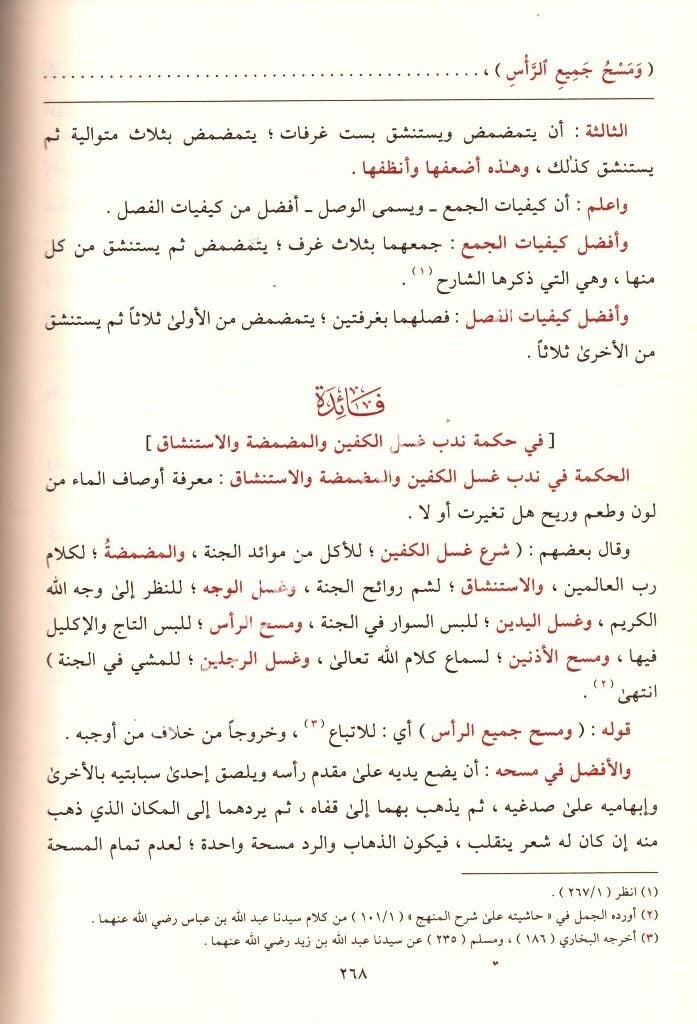 ( وَمَسْحُ جَمِيعِ ٱلرَّأْسِ ) ، ................................................
الثالثة : أن يتمضمض ويستنشق بست غرفات ؛ يتمضمض بثلاث متوالية ثم
يستنشق كذلك ، وهذه أضعفها وأنظفها .
واعلم : أن كيفيات الجمع ـ ويسمى الوصل ـ أفضل من كيفيات الفصل .
وأفضل كيفيات الجمع : جمعهما بثلاث غرف ؛ يتمضمض ثم يستنشق من كل
منها ، وهي التي ذكرها الشارح (١) .
وأفضل كيفيات الفصل : فصلهما بغرفتين ؛ يتمضمض من الأولىٰ ثلاثاً ثم يستنشق
من الأخرىٰ ثلاثاً .
فَائِدَة
[ في حكمة ندب غسل الكفين والمضمضة والاستنشاق ]
الحكمة في ندب غسل الكفين والمضمضة والاستنشاق : معرفة أوصاف الماء من
لون وطعم وريح هل تغيرت أو لا .
وقال بعضهم : ( شرع غسل الكفين ؛ للأكل من موائد الجنة ، والمضمضةُ ؛ لكلام
رب العالمين ، والاستنشاق ؛ لشم روائح الجنة ، وغسل الوجه ؛ للنظر إلىٰ وجه الله
الكريم ، وغسل اليدين ؛ للبس السوار في الجنة ، ومسح الرأس ؛ للبس التاج والإكليل
فيها ، ومسح الأذنين ؛ لسماع كلام الله تعالىٰ ، وغسل الرجلين ؛ للمشي في الجنة )
انتهىٰ (٢) .
قوله : ( ومسح جميع الرأس ) أي : للاتباع (٣) ، وخروجاً من خلاف من أوجبه .
والأفضل في مسحه : أن يضع يديه علىٰ مقدم رأسه ويلصق إحدىٰ سبابتيه بالأخرىٰ
وإبهاميه علىٰ صدغيه ، ثم يذهب بهما إلىٰ قفاه ، ثم يردهما إلى المكان الذي ذهب
منه إن كان له شعر ينقلب ، فيكون الذهاب والرد مسحة واحدة ؛ لعدم تمام المسحة
(١) انظر ( ٢٦٧/١ ) .
(٢) أورده الجمل في « حاشيته علىٰ شرح المنهج » ( ١٠١/١ ) من كلام سيدنا عبد الله بن عباس رضي الله عنهما .
(٣) أخرجه البخاري ( ١٨٦ ) ، ومسلم ( ٢٣٥ ) عن سيدنا عبد الله بن زيد رضي الله عنهما .
٢٦٨